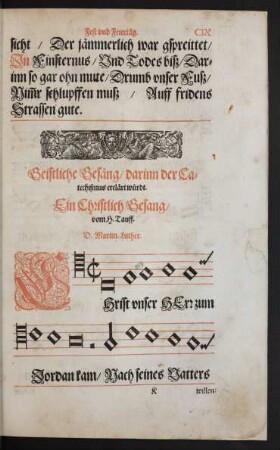 Fest und Feyrtäg. CIX
sicht / Der jämmerlich war gspreittet /
In Finsternus / Und Todes biß / Dar-
inn so gar ohn mute / Drumb unser Fuß /
schlupffen muß / Auff fridens
Strassen gute.
Geistliche Gesäng / darinn der Ca-
techismus erklärt würdt.
Ein Christlich Gesang /
vom H. Tauff.
D. Martin. Luther.
CHrist unser HErr zum
Jordan kam / Nach seines Vatters
K willen: